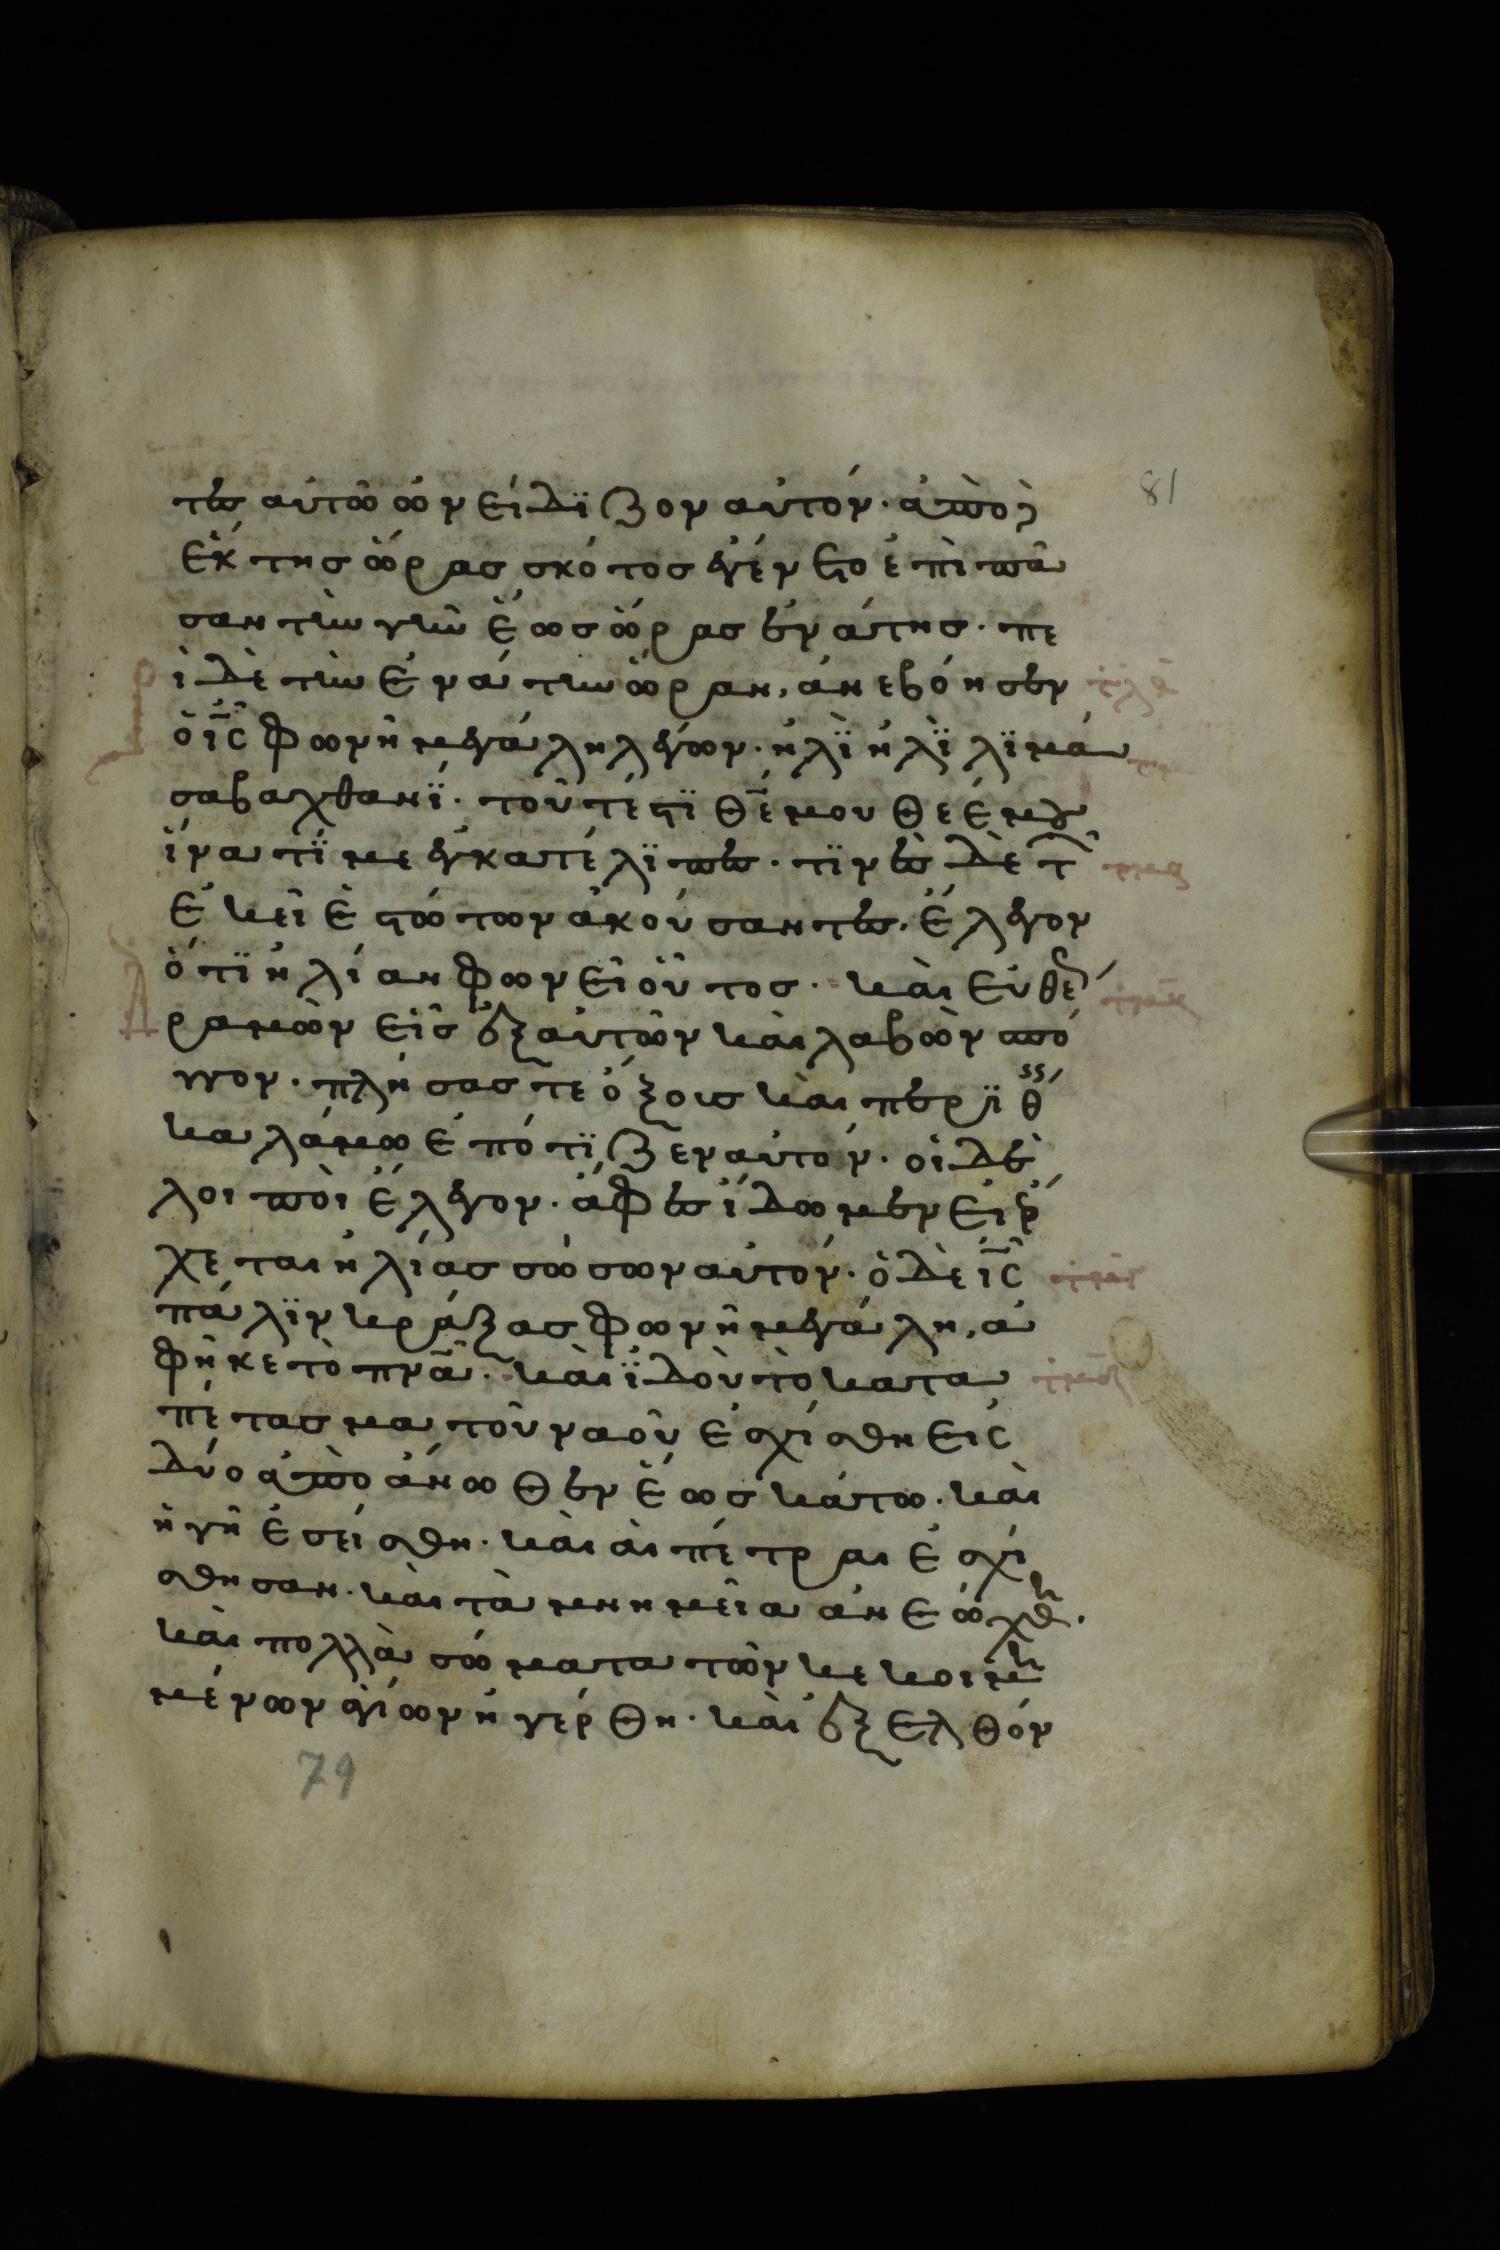 81
τες αὐτῶ ὠνείδϊζον αὐτόν· ἀπὸ
ἕκτης ὥρας σκότος ἐγένετο ἐπὶ πᾶ
σαν τὴν γῆν ἕως ὥρας ἐνάτης· πε
ὶ δὲ τὴν ἐνάτην ὥραν, ἀνεβόησεν
ὁ ις φωνῆ μεγάλη λέγων· ἠλῒ ἠλῒ λϊμὰ
σαβαχθανΐ· τοῦτέστϊ θέ μου θέ ἐμου
ἵνα τΐ με ἐγκατέλϊπες· τϊνὲς δὲ τ
ἐκεῖ ἐστώτων ἀκούσαντες· ἔλεγον
ὅτϊ ἠλίαν φωνεῖ οὗτος· καὶ εὐθέ
ραμὼν εἷς ἐξ αὐτῶν καὶ λαβὼν σπό
γγον· πλήσας τε ὄξους καὶ περϊθ
καλάμω ἐπότϊζεν αὐτόν· οἱ δὲ
λοιποὶ ἔλεγον· ἄφες ἴδωμεν εἰ ἔρ
χεται ἠλίας σώσων αὐτόν· ὁ δὲ ις
πάλϊν κράξας φωνῆ μεγάλη, ἀ
φῆκε τὸ πνα· καὶ ϊδοὺ τὸ κατα
πέτασμα τοῦ ναοῦ ἐσχίσθη εἰς
δύο ἀπὸ ἄνωθεν ἕως κάτω· καὶ
ἡ γῆ ἐσείσθη· καὶ αἱ πέτραι ἐσχί
σθησαν· καὶ τὰ μνημεῖα ἀνεώχθη·
καὶ πολλὰ σώματα τῶν κεκοιμη
μένων ἁγίων ἠγέρθη· καὶ ἐξελθόν
79